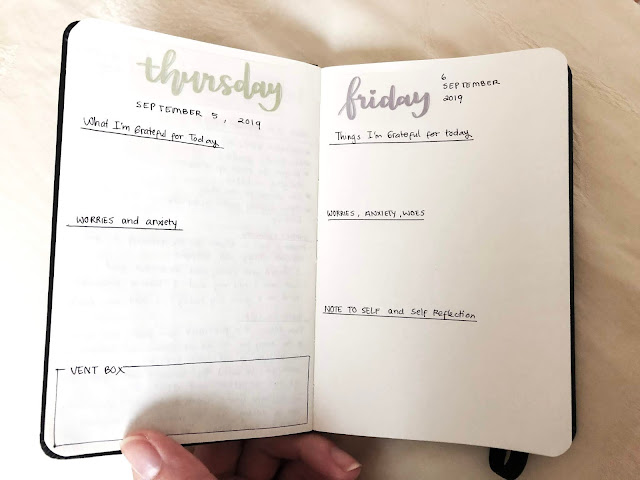 thursday
SEPTEMBER 5, 2019
What I'm Grateful for Today
WORRIES and anxiety
VENT BOX
friday
6
SEPTEMBER
2019
Things I'm Grateful for today
WORRIES, ANXIETY, WOES
NOTE TO SELF and Self Reflection